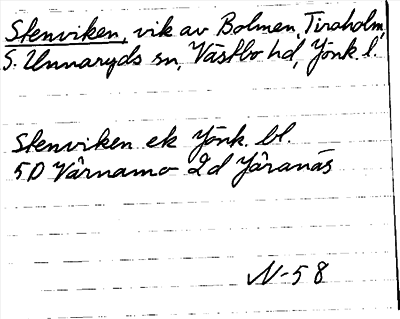 Stenviken, vik av Bolmen, Tiraholm,
S. Unnaryds sn, Västbo hd, Jönk. l.
Stenviken ek Jönk. bl.
5D Värnamo 2d Järanäs
N-58